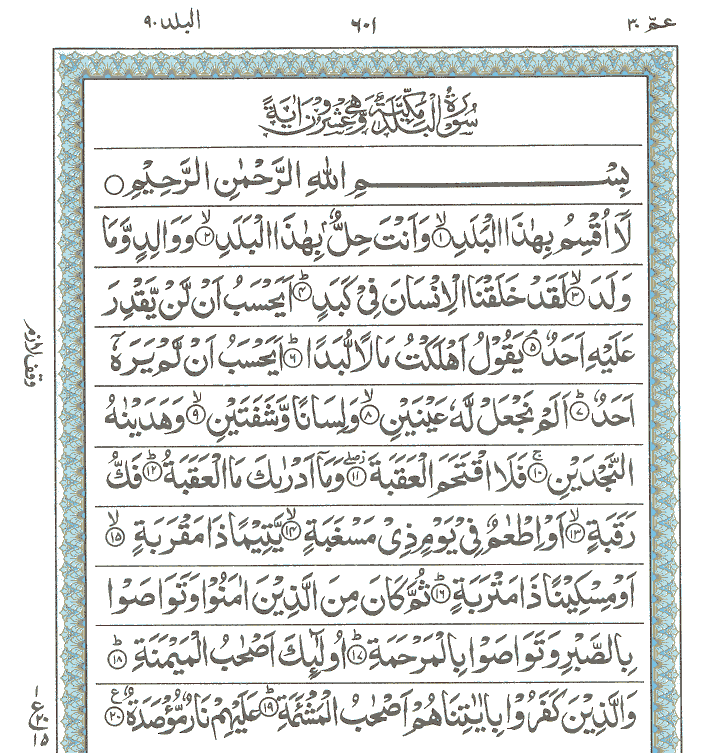 عمّ ٣٠
٦٠١
البلد ٩٠
سُوْرَةُ الْبَلَدِ مَكِّيَّةٌ وَّهِيَ عِشْرُوْنَ اٰيَةً
بِسْمِ اللّٰهِ الرَّحْمٰنِ الرَّحِيْمِ
لَاۤ اُقْسِمُ بِهٰذَا الْبَلَدِ ﴿١﴾ وَاَنْتَ حِلٌّۢ بِهٰذَا الْبَلَدِ ﴿٢﴾ وَوَالِدٍ وَّمَا
وَلَدَ ﴿٣﴾ لَقَدْ خَلَقْنَا الْاِنْسَانَ فِيْ كَبَدٍ ﴿٤﴾ اَيَحْسَبُ اَنْ لَّنْ يَّقْدِرَ
عَلَيْهِ اَحَدٌ ﴿٥﴾ يَقُوْلُ اَهْلَكْتُ مَالًا لُّبَدًا ﴿٦﴾ اَيَحْسَبُ اَنْ لَّمْ يَرَهٗۤ
اَحَدٌ ﴿٧﴾ اَلَمْ نَجْعَلْ لَّهٗ عَيْنَيْنِ ﴿٨﴾ وَلِسَانًا وَّشَفَتَيْنِ ﴿٩﴾ وَهَدَيْنٰهُ
النَّجْدَيْنِ ﴿١٠﴾ فَلَا اقْتَحَمَ الْعَقَبَةَ ﴿١١﴾ وَمَاۤ اَدْرٰىكَ مَا الْعَقَبَةُ ﴿١٢﴾ فَكُّ
رَقَبَةٍ ﴿١٣﴾ اَوْ اِطْعٰمٌ فِيْ يَوْمٍ ذِيْ مَسْغَبَةٍ ﴿١٤﴾ يَّتِيْمًا ذَا مَقْرَبَةٍ ﴿١٥﴾
اَوْ مِسْكِيْنًا ذَا مَتْرَبَةٍ ﴿١٦﴾ ثُمَّ كَانَ مِنَ الَّذِيْنَ اٰمَنُوْا وَتَوَاصَوْا
بِالصَّبْرِ وَتَوَاصَوْا بِالْمَرْحَمَةِ ﴿١٧﴾ اُولٰٓئِكَ اَصْحٰبُ الْمَيْمَنَةِ ﴿١٨﴾
وَالَّذِيْنَ كَفَرُوْا بِاٰيٰتِنَا هُمْ اَصْحٰبُ الْمَشْـَٔمَةِ ﴿١٩﴾ عَلَيْهِمْ نَارٌ مُّؤْصَدَةٌ ﴿٢٠﴾
وقف لازم
ع
٢٠
١٥